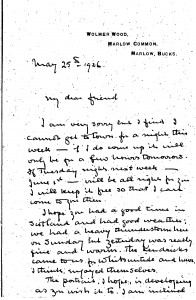 WOLMER WOOD,
MARLOW COMMON,
MARLOW, BUCKS.
May 25th 1926.
My dear friend
I am very sorry but I find I
cannot get to town for a night this
week — if I do come up it will
only be for a few hours tomorrow.
If Tuesday night next week —
June 1st — will be all right for you
I will keep it free so that I can
come to you then.
I hope you had a good time in
Scotland and had good weather;
we had a heavy thunderstorm here
on Sunday but yesterday was really
fine and warm. The Kendricks
came to us for Whitsuntide and have,
I think, enjoyed themselves.
The portrait, I hope, is developing
as you wish it to. I am inclined